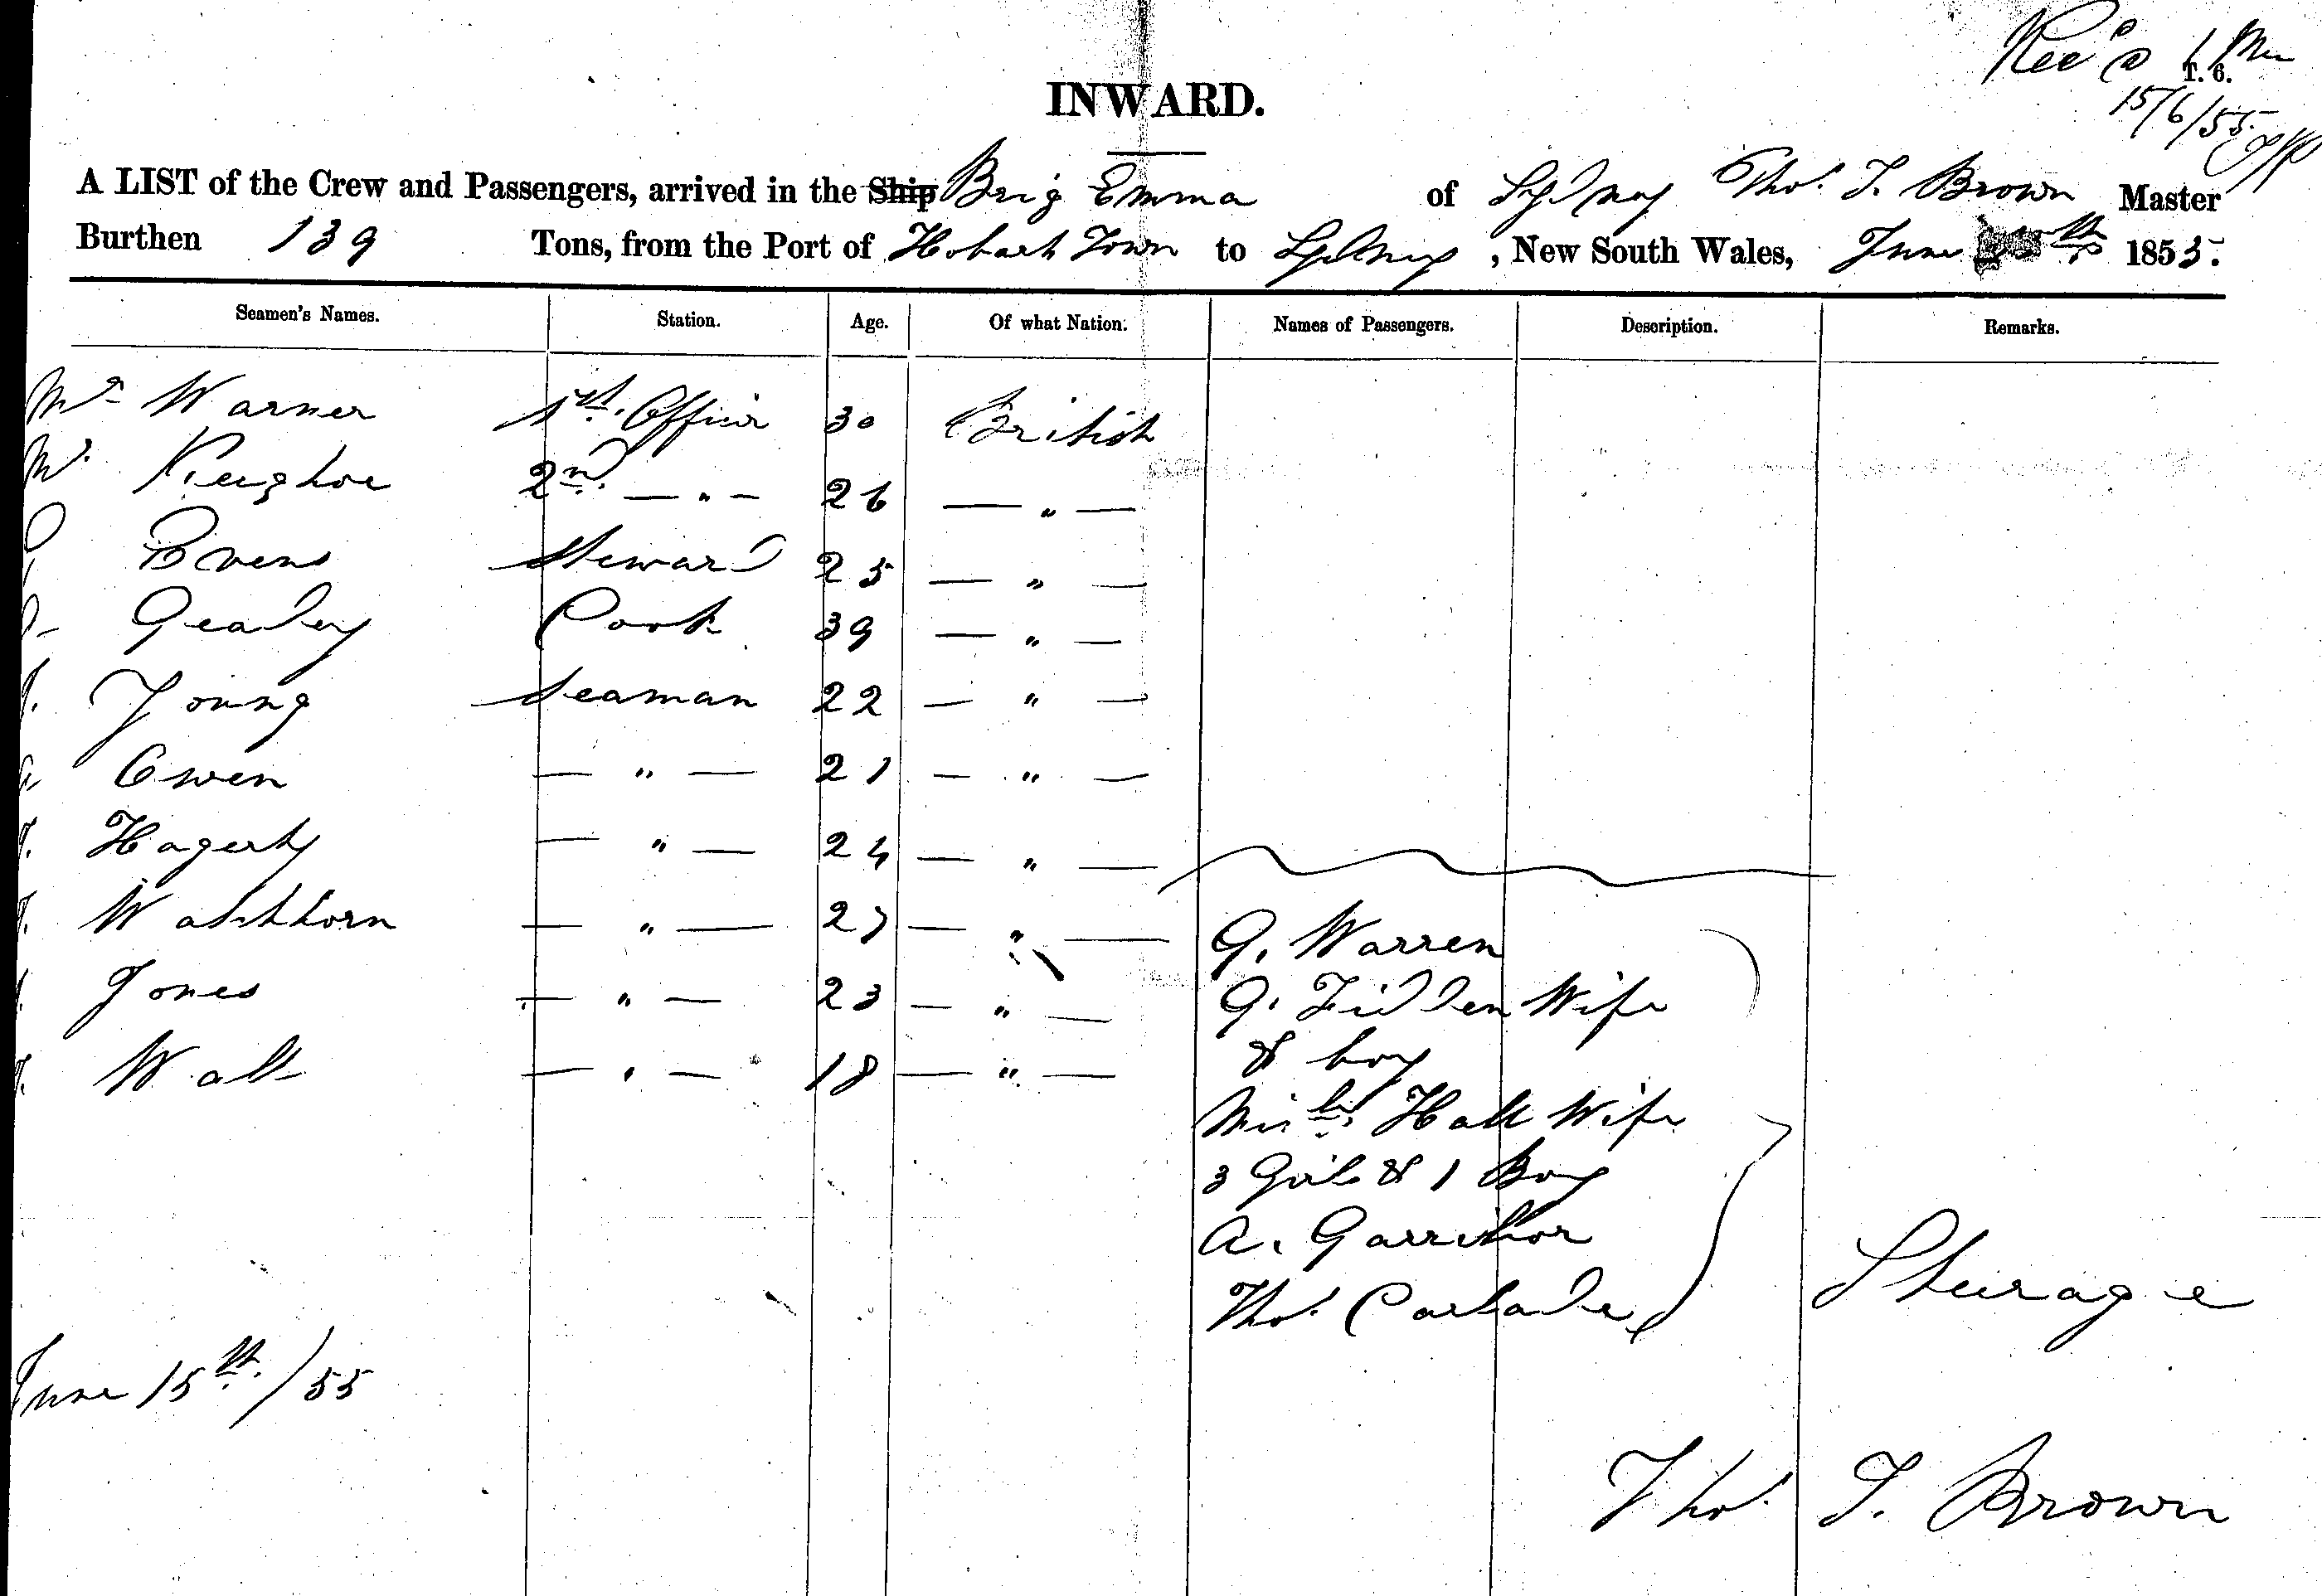 Rec'd
T. 6.
15/6/55
INWARD.
A LIST of the Crew and Passengers, arrived in the Ship Brig Emma of Sydney Thos. T. Brown Master
Burthen 139 Tons, from the Port of Hobart Town to Sydney, New South Wales, June 1855.
Seamen's Names. Station. Age. Of what Nation. Names of Passengers. Description. Remarks.
Mr Warner 1st. Officer 30 British
Mr. 2nd. — " — 26 — " —
Evens Steward 25 — " —
Gealey Cook 39 — " —
Young Seaman 22 — " —
Owen — " — 21 — " —
Hagerty — " — 24 — " —
Washhorn — " — 27 — " — G. Warren
Jones — " — 23 — " — G. Fidden Wife
& boy
Wall — " — 18 — " —
Hall Wife
3 Girls & 1 Boy
A. Garrithor
Thos. Steerage
June 15th. /55
Thos. T. Brown